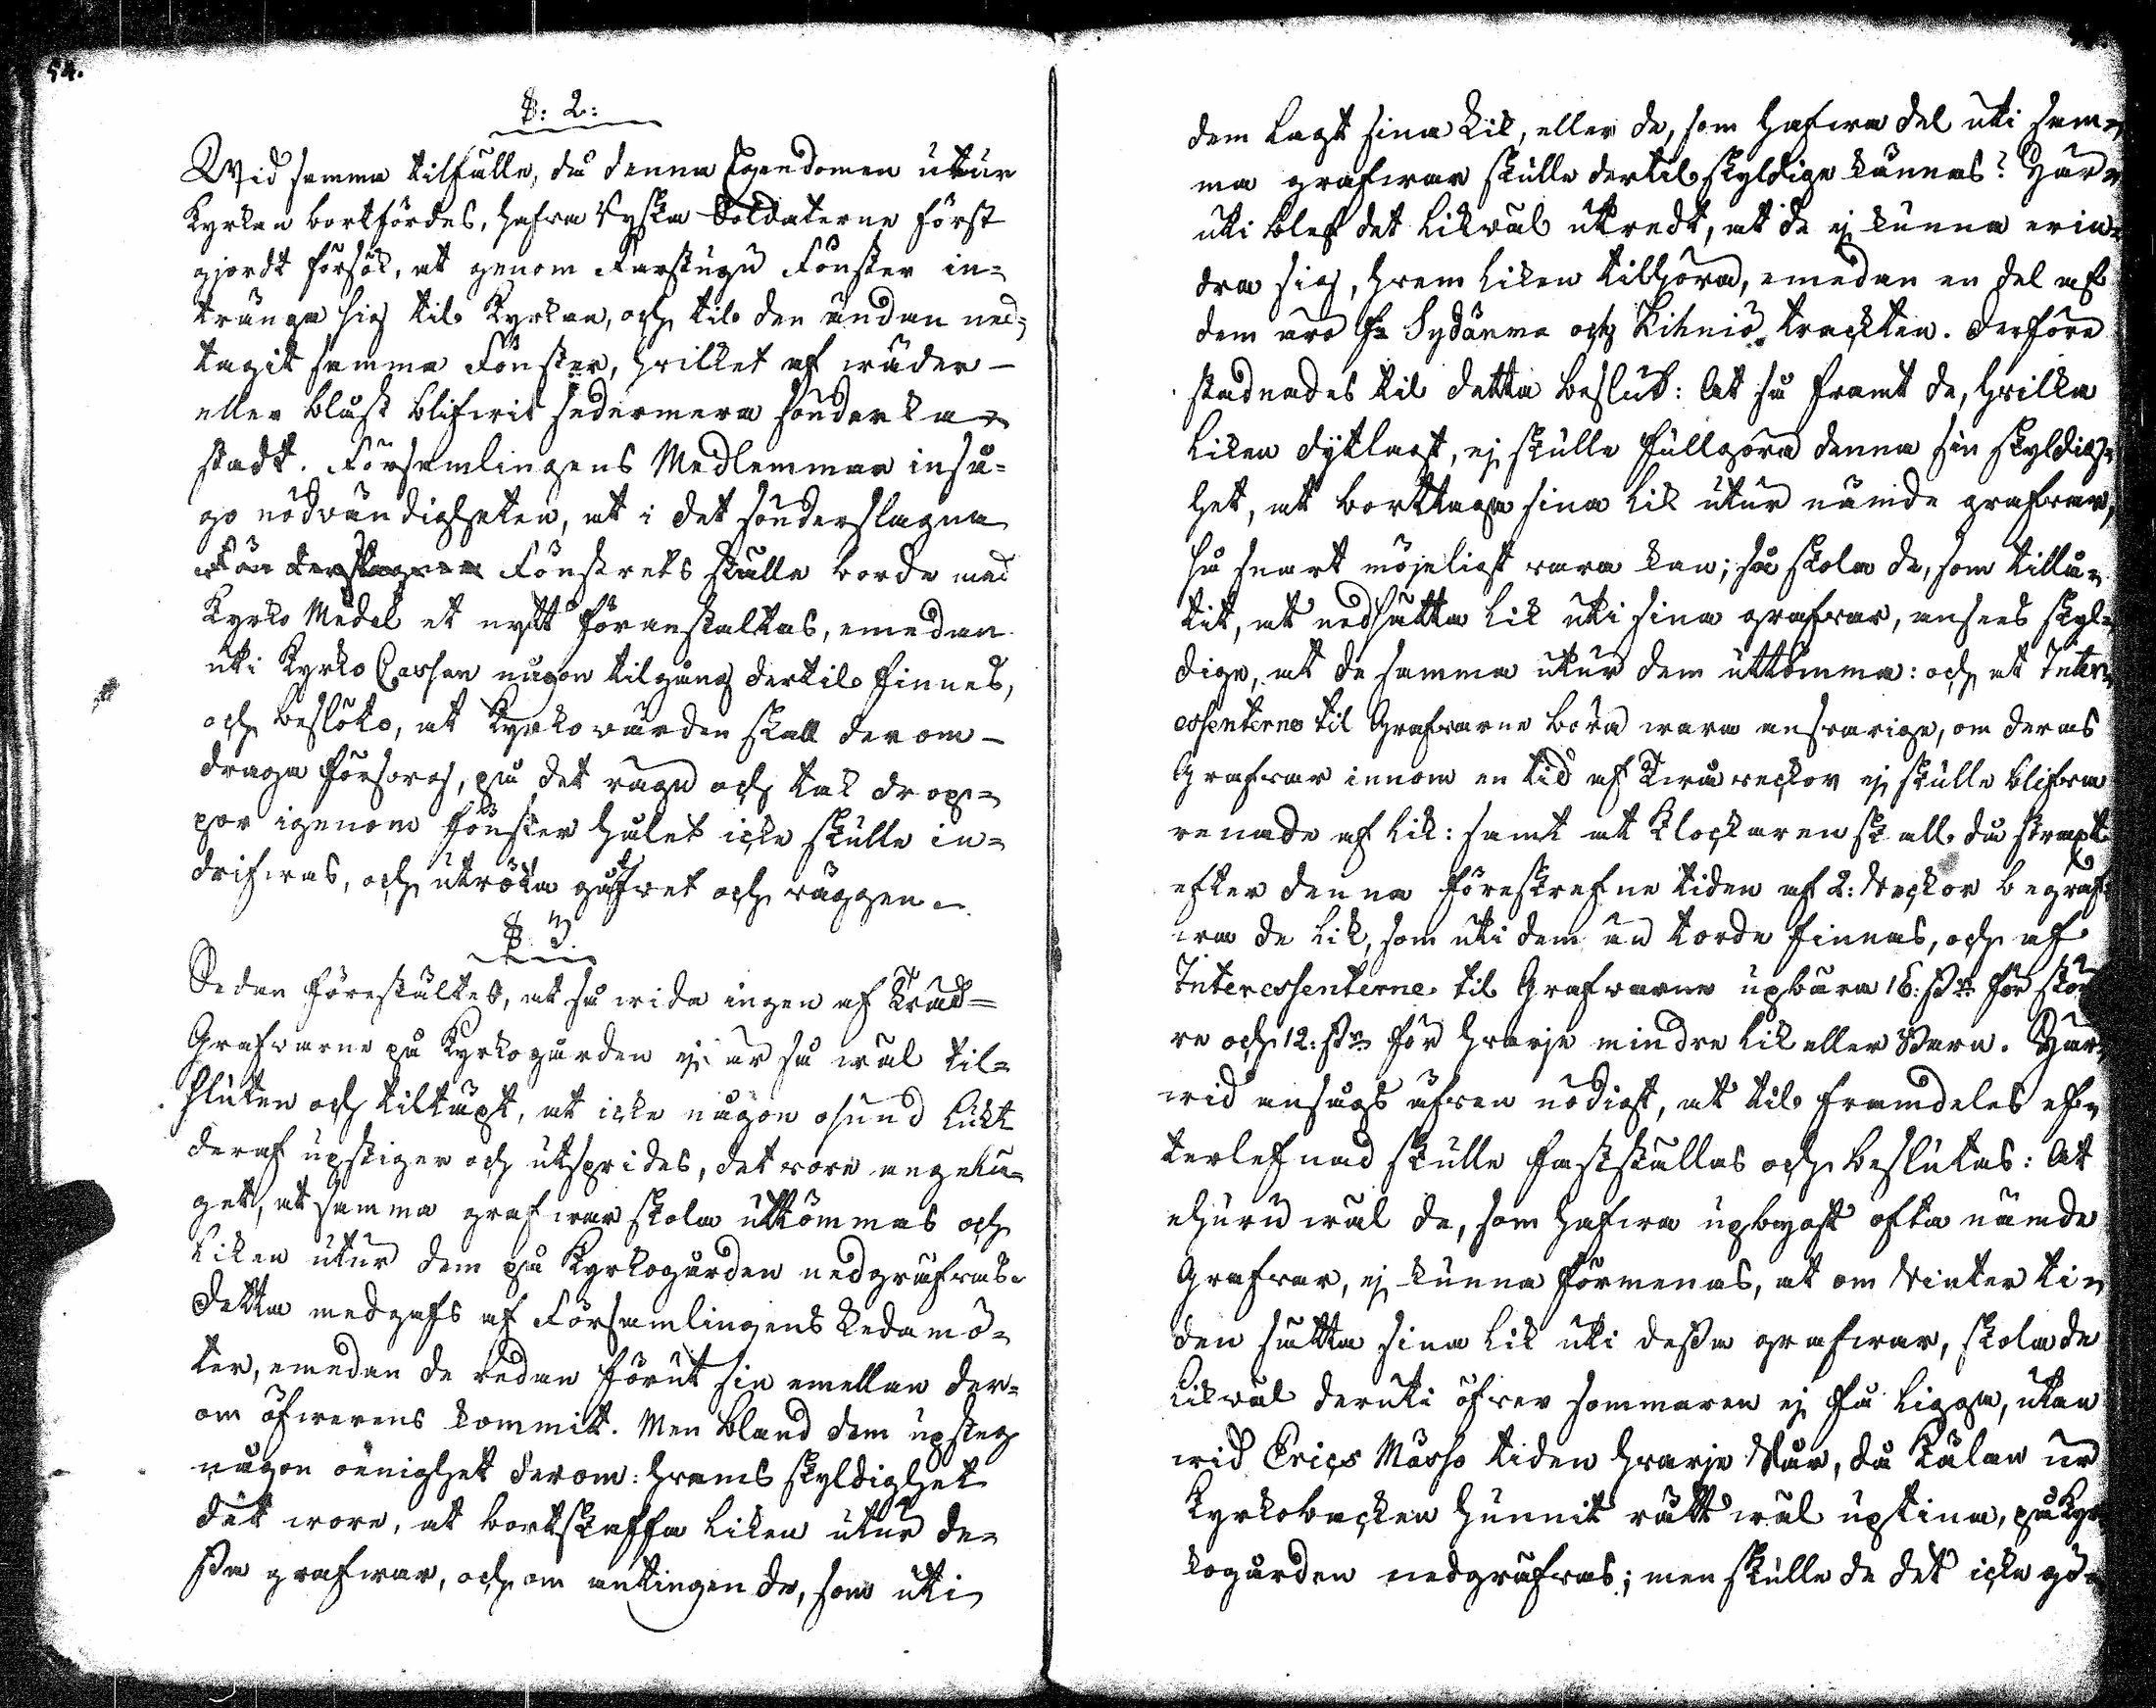 54.
§: 2:
Wid samma tilfälle, då denna Egendomen utur
Kyrkan bortfördes, hafva Ryska Soldaterne först
gjordt försök, at genom Farstugu Fönster in-
tränga sig til Kyrkan, och til den ändan ned-
tagit samma Fönster, hvilket af wäder-
eller blåst blifwit sedermera sönderka-
stadt. Församlingens Medlemmar inså-
go nödvändigheten, at i det sönderslagna
Fönstrets ställe borde med
Kyrko Medel et nytt föranstaltas, emedan
uti Kyrko Cassan någon tilgång dertil finnes,
och beslöts, at Kyrkowärden skall derom-
draga försorg, på det rägn och tak drop-
par igenom fönster hålet icke skulle in-
drifwas, och utröta golfvet och väggen.
§. 3.
Sedan föreståltes, at så wida ingen af Trä-
Grafvarne på Kyrkogården ej är så wäl til-
sluten och tiltäpt, at icke någon osund lukt
deraf upstiger och utsprides, det vore angelä-
get, at samma grafwar skola uttömmas och
Liken utur dem på Kyrkogården nedgräfvas.
Detta medgafs af Församlingens Ledamö-
ter, emedan de redan förut sin emellan der-
om öfwerens kommit. Men bland dem upsteg
någon oenighet derom: hvems skyldighet
det wore, at bortskaffa liken utur de-
ssa grafwar, och om antingen de, som uti
dem lagt sina Lik, eller de, som hafwa del uti sam-
ma grafwar skulle dertil skyldige kännas? Här-
uti blef det likväl utredt, at de ej kunna erin-
dra sig, hvem liken tilhöra, emedan en del af
dem äro fr Sydänma och Kihniö trackten. Derföre
stadnades til detta beslut: At så framt de, hvilka
liken ditlagt, ej skulle fullgöra denna sin skyldig-
het, at borttaga sina lik utur nämde grafvar,
så snart möjeligt vara kan; så skola de, som tillå-
tit, at nedsätta lik uti sina grafvar, anses skyl-
dige, at de samma utur dem uttömma: och at Inter-
essenterne til Grafvarne böra wara ansvarige, om deras
Grafvar innom en tid af twå veckor ej skulle blifva
renade af lik: samt at Klockaren skall då strapt
efter denna föreskrefne tiden af 2: Veckor begraf-
wa de lik, som uti dem än torde finnas, och af
Interessenterne til Grafvarne upbära 16: st för stör
re och 12: st för hvarje mindre lik eller Barn. Här-
wid ansågs äfven nödigt, at til framdeles ef-
terlefnad skulle fastställas och beslutas: At
ehuru wäl de, som hafwa upbygt ofta nämde
Grafvar, ej kunna förmenas, at om Vinter ti-
den sätta sina lik uti dessa grafwar, skola de
likväl deruti öfver sommaren ej få ligga, utan
wid Erics Mässo tiden hvarje Vår, då Kälan ur
Kyrkobacken hunnit rätt wäl uptina, på Kyr
kogården nedgräfvas; men skulle de det icke gö-